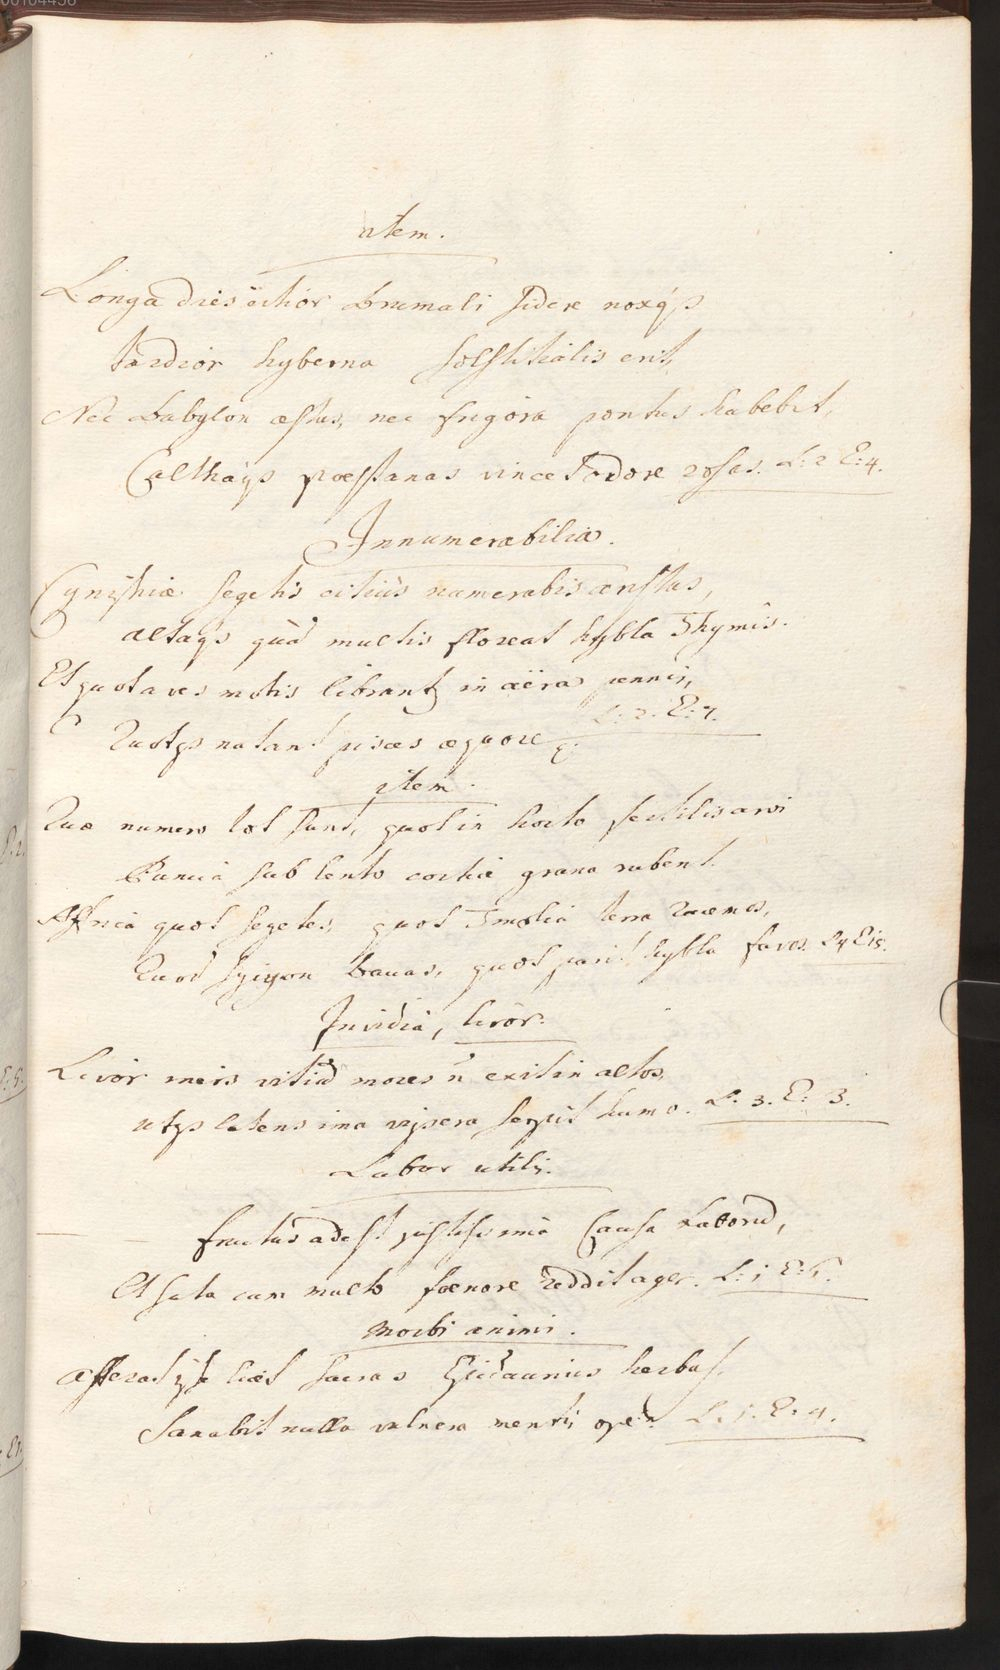 00104456
item.
Longa dies ocior brumali sidere noxq3
tardior hyberna solstitialis erit,
Nec Babylon æstus, nec frigora pontus habebit,
Calthaq3 pæstanas vincet odore rosas. L: 2 E: 4.
Innumerabilia.
Cyniphiæ segetis citiùs numerabis aristas,
altaq3 quā multis floreat hybla Thymis.
Et quot aves motis librant in aëra pennis,
Quotq3 natant pisces æquore L: 2. E: 7.
item.
Quæ numero tot sunt, quot in horto fertilis arvi
Punica sub lento cortice grana rubent.
Affrica quot segetes, quot Tmolia terra racemos,
Quot Sycion baccas, quot parit hybla favos. L 4 E 15.
Invidia, livor.
Livor iners vitiū mores ñ exit in altos,
utq3 latens ima vipera serpit humo. L: 3. E: 3.
Labor utilis.
fructus adest justissima causa Laborū,
Et sata cum multo fœnore reddit ager. L: 1 E: 5.
Morbi animi.
Afferat ipse licet sacras Epidaurius herbas,
Sanabit nulla vulnera mentis ope. L: 1. E: 4.